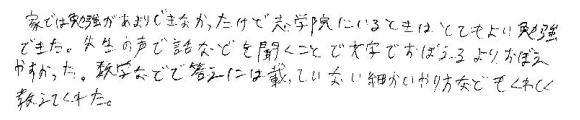 家では勉強があまりできなかったけど志学院にいるときはとてもよい勉強
できた。先生の声で話などを聞くことで文字でおぼえるよりおぼえ
やすかった。数学などで答えには載っていない細かいやり方などもくわしく
教えてくれた。